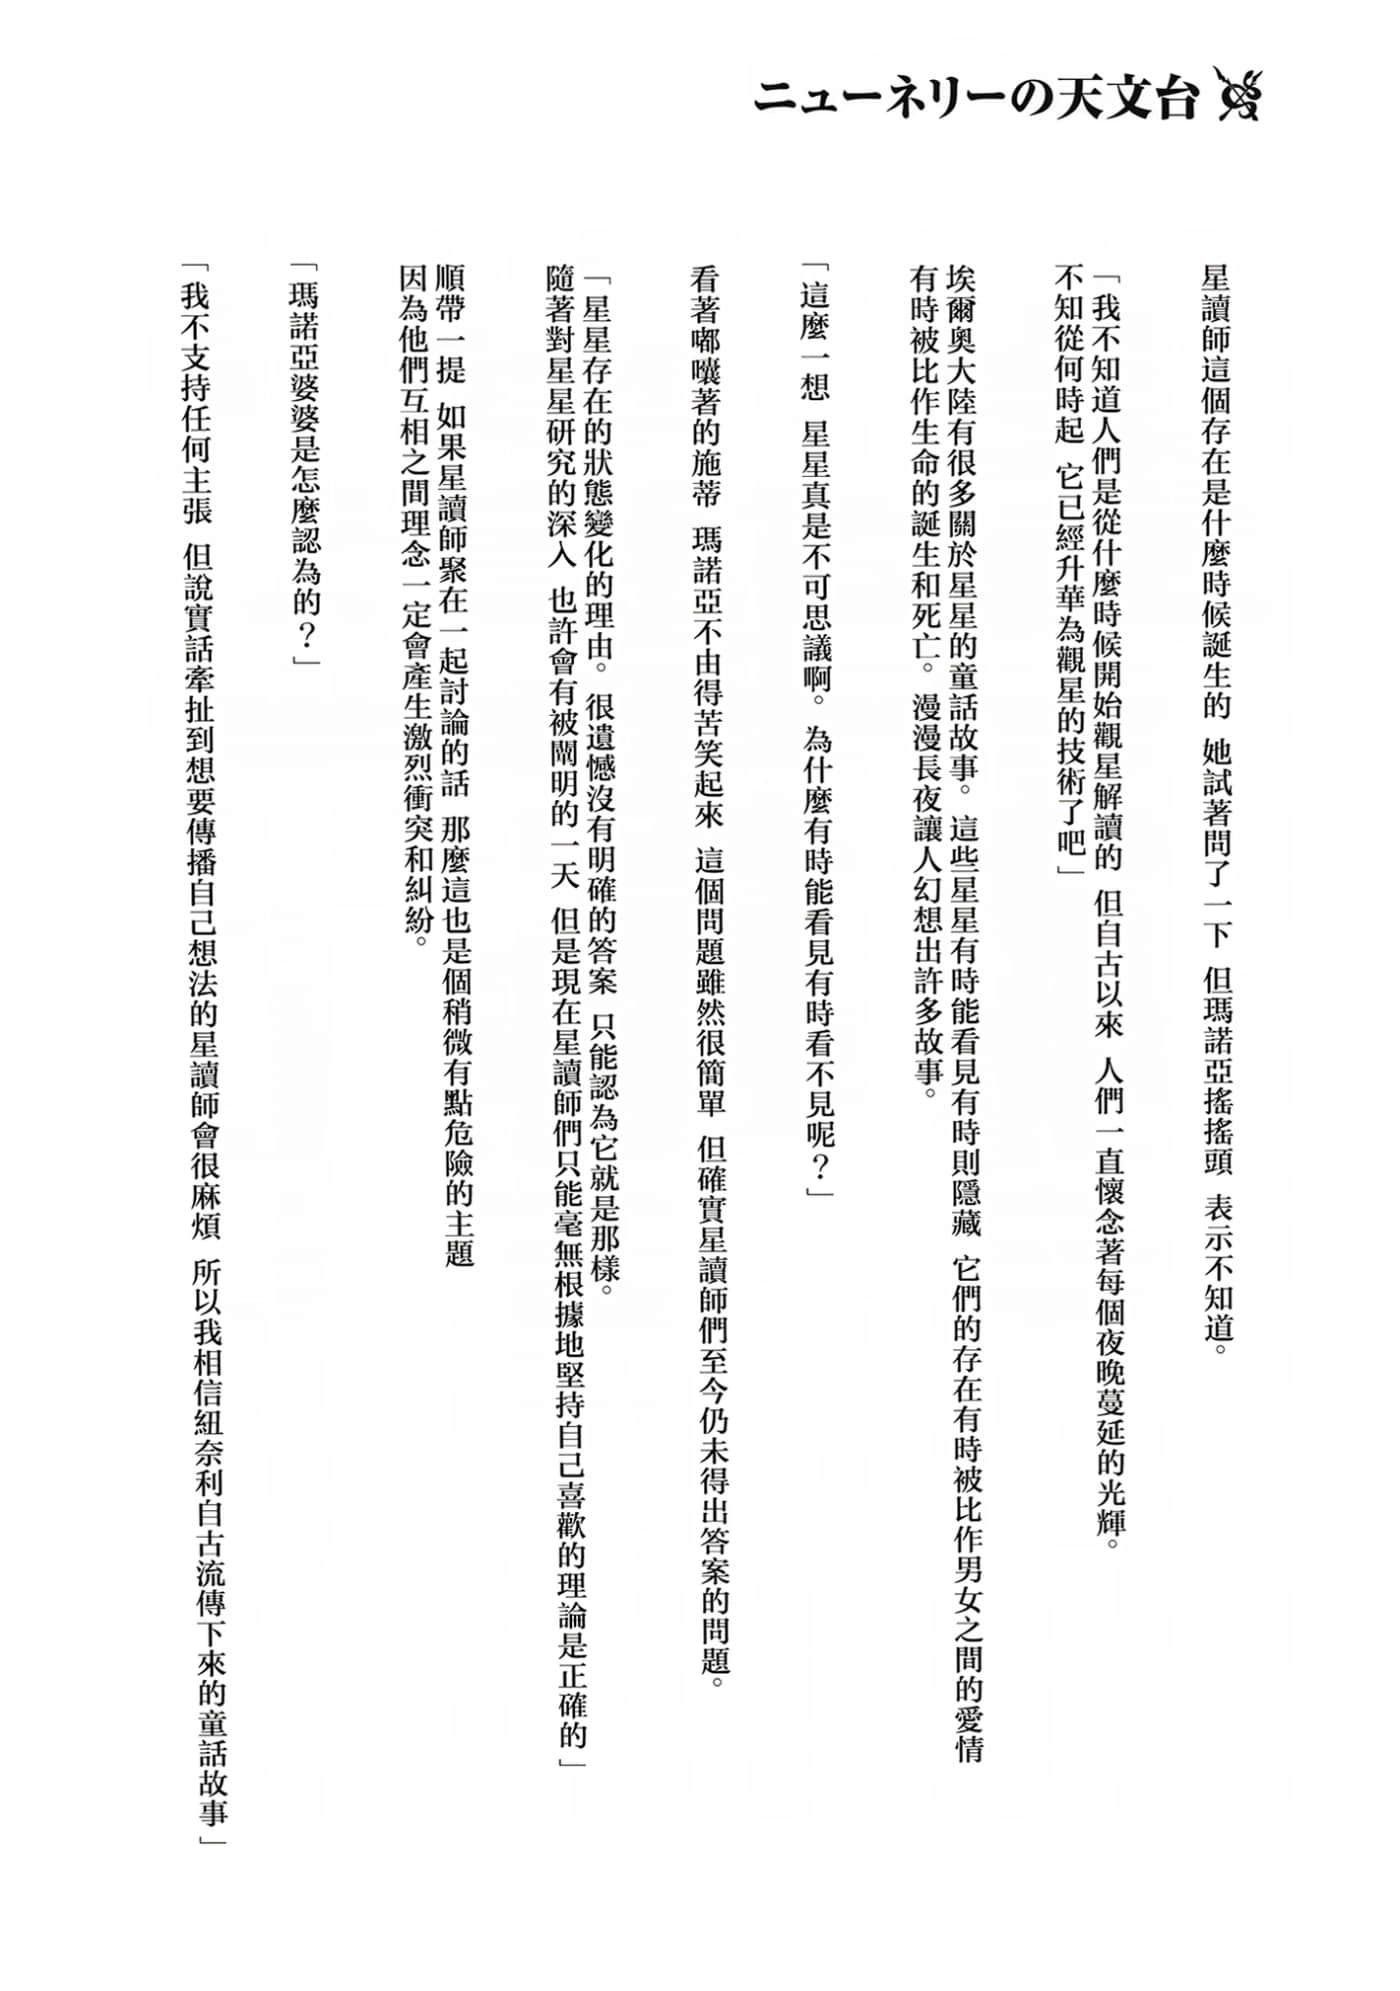 ニューネリーの天文台
星讀師這個存在是什麼時候誕生的 她試著問了一下 但瑪諾亞搖搖頭 表示不知道。
「我不知道人們是從什麼時候開始觀星解讀的 但自古以來 人們一直懷念著每個夜晚蔓延的光輝。
不知從何時起 它已經升華為觀星的技術了吧」
埃爾奧大陸有很多關於星星的童話故事。這些星星有時能看見有時則隱藏 它們的存在有時被比作男女之間的愛情
有時被比作生命的誕生和死亡。漫漫長夜讓人幻想出許多故事。
「這麼一想 星星真是不可思議啊。為什麼有時能看見有時看不見呢？」
看著嘟囔著的施蒂 瑪諾亞不由得苦笑起來 這個問題雖然很簡單 但確實星讀師們至今仍未得出答案的問題。
「星星存在的狀態變化的理由。很遺憾沒有明確的答案 只能認為它就是那樣。
隨著對星星研究的深入 也許會有被闡明的一天 但是現在星讀師們只能毫無根據地堅持自己喜歡的理論是正確的」
順帶一提 如果星讀師聚在一起討論的話 那麼這也是個稍微有點危險的主題
因為他們互相之間理念一定會產生激烈衝突和糾紛。
「瑪諾亞婆婆是怎麼認為的？」
「我不支持任何主張 但說實話牽扯到想要傳播自己想法的星讀師會很麻煩 所以我相信紐奈利自古流傳下來的童話故事」